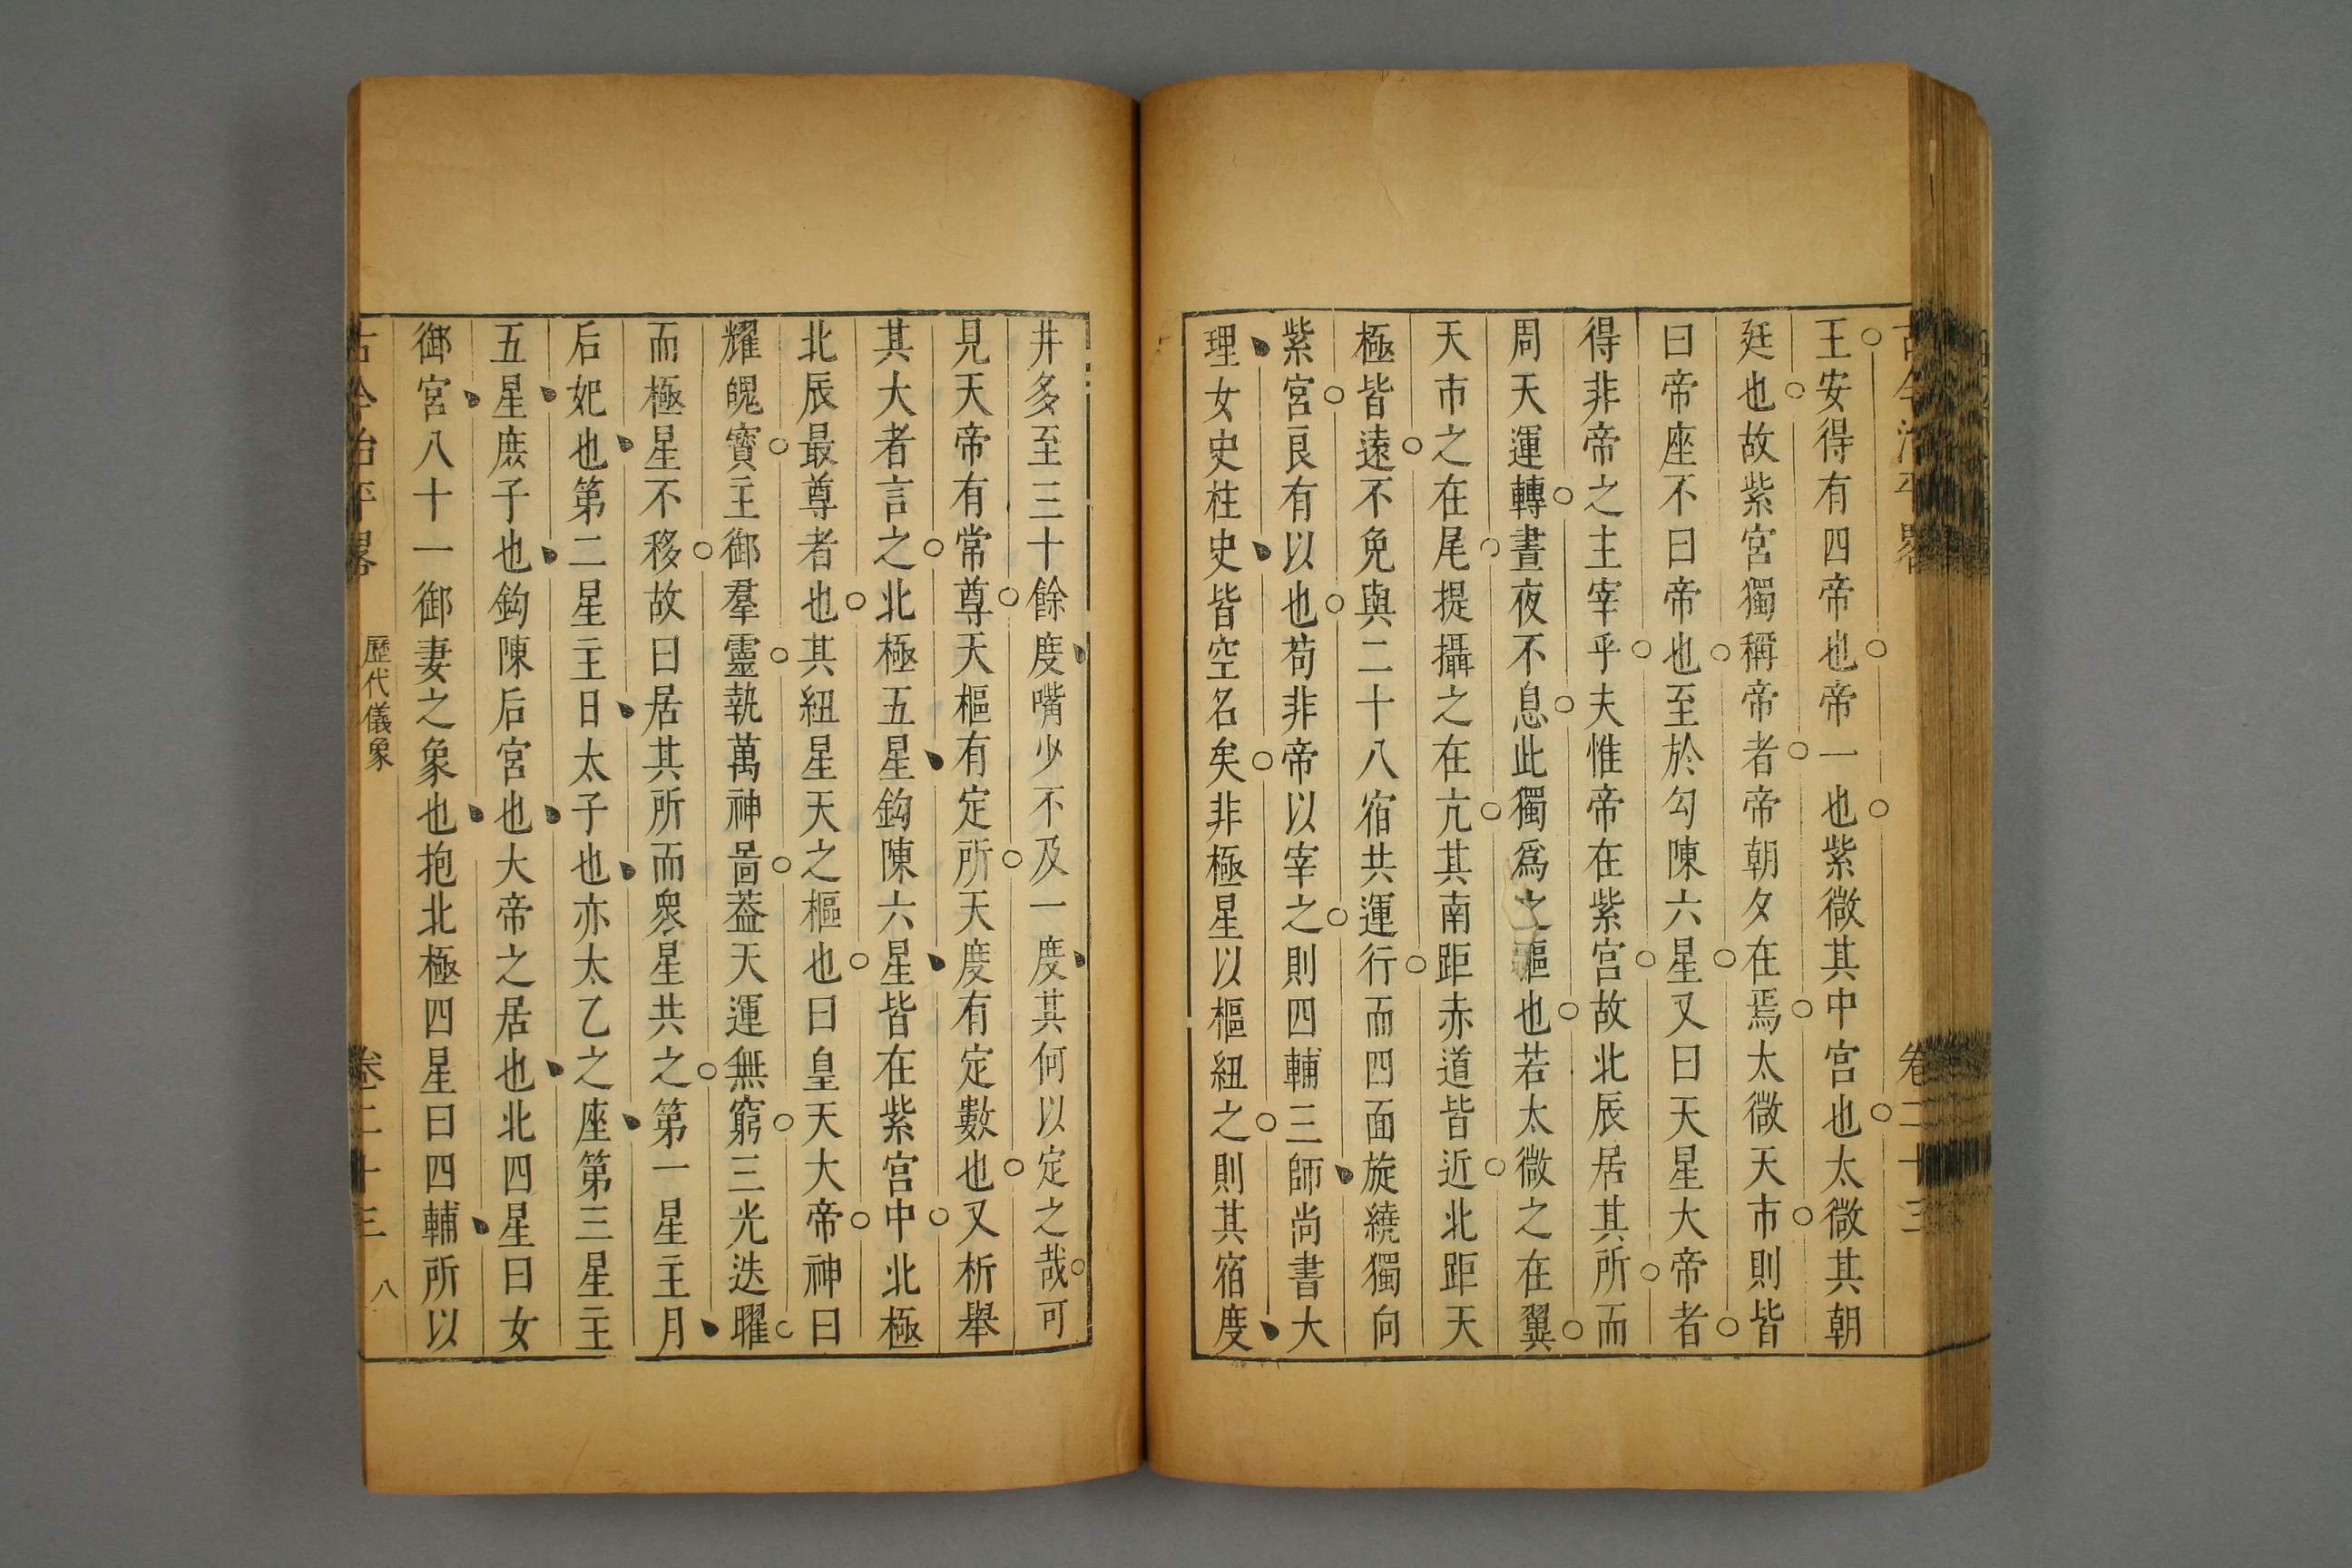 王安得有四帝也帝一也紫微其中宮也太微其朝
廷也故紫宮獨稱帝者帝朝夕在焉太微天市則皆
曰帝座不曰帝也至於勾陳六星又曰天星大帝者
得非帝之主宰乎夫惟帝在紫宮故北辰居其所而
周天運轉晝夜不息此獨爲之樞也若太微之在翼
天市之在尾提攝之在亢其南距赤道皆近北距天
極皆遠不免與二十八宿共運行而四面旋繞獨向
紫宮良有以也苟非帝以宰之則四輔三師尚書大
理女史柱史皆空名矣非極星以樞紐之則其宿度
井多至三十餘度嘴少不及一度其何以定之哉可
見天帝有常尊天樞有定所天度有定數也又析舉
其大者言之北極五星鈎陳六星皆在紫宮中北極
北辰最尊者也其紐星天之樞也曰皇天大帝神曰
耀魄寶主御羣靈執萬神啚葢天運無窮三光迭曜
而極星不移故曰居其所而衆星共之第一星主月
后妃也第二星主日太子也亦太乙之座第三星主
五星庶子也鈎陳后宮也大帝之居也北四星曰女
御宮八十一御妻之象也抱北極四星曰四輔所以
古今治平畧
歷代儀象
卷二十三
八